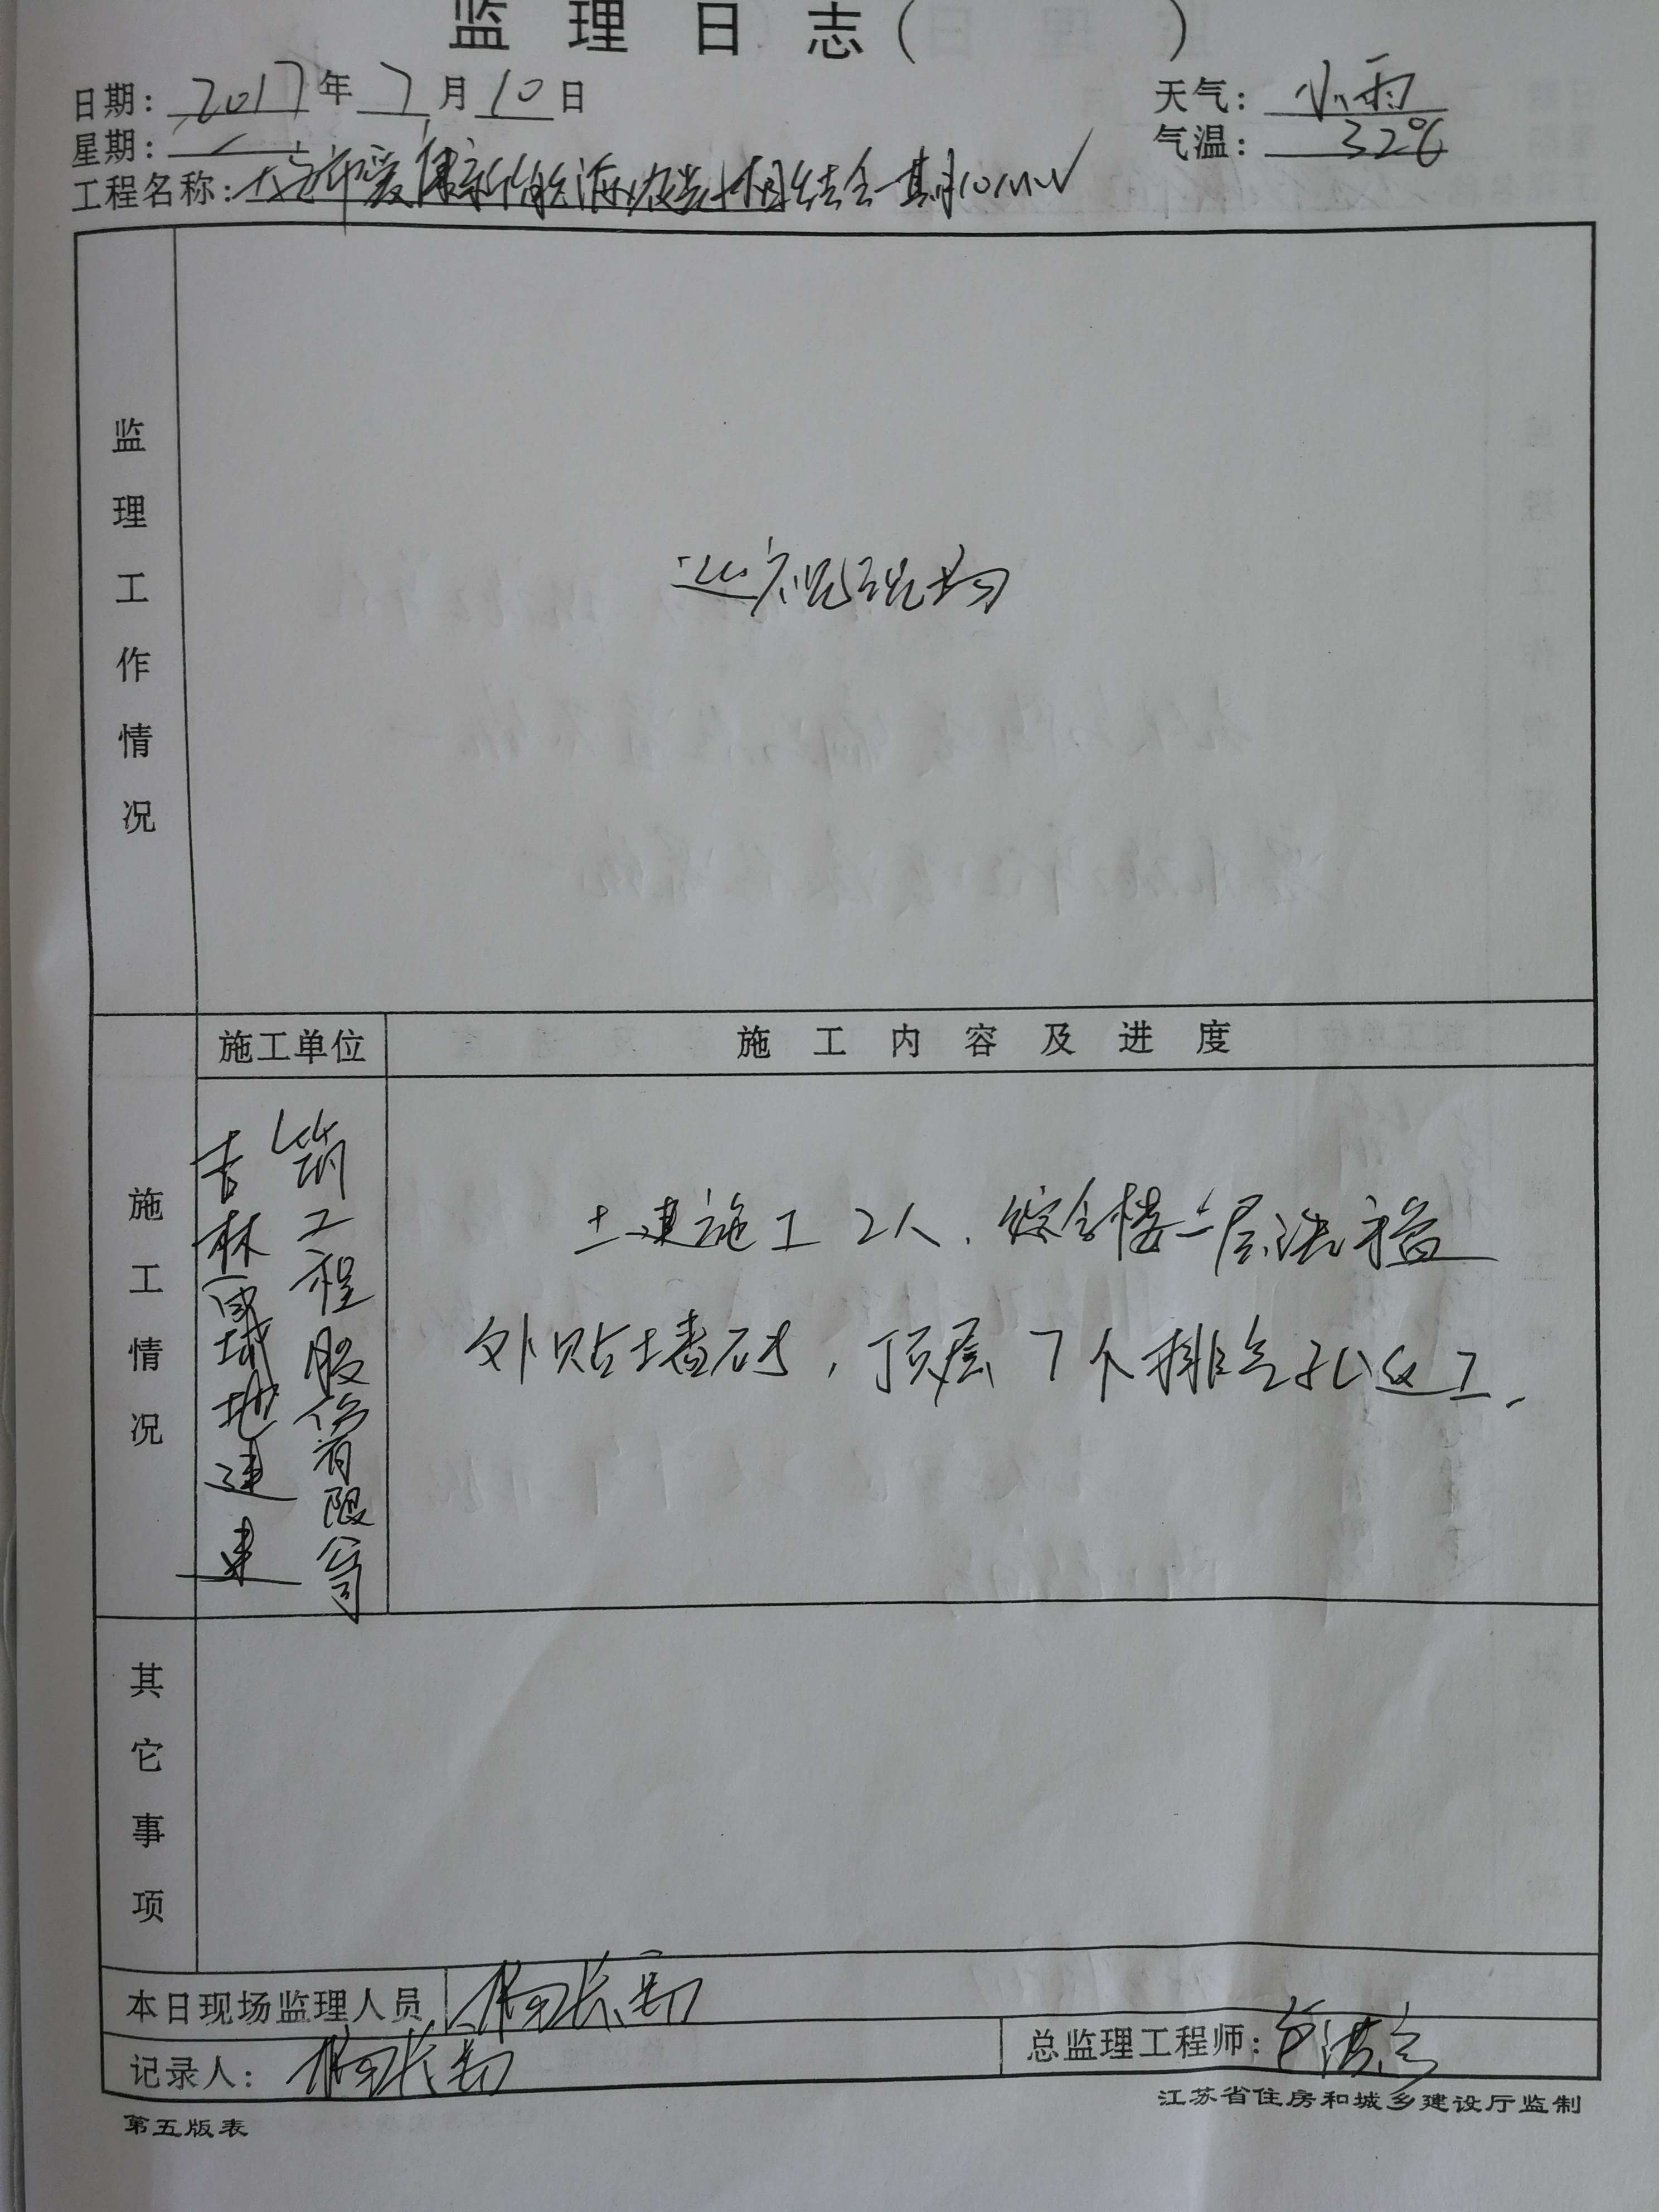 监理日志( )
日期: 2017年7月10日 天气: 小雨
星期: 一 气温: 32℃
工程名称: 新能源农光互补相结合一期10MW
监理工作情况
巡视现场
施工情况
施工单位 施工内容及进度
吉林 城地建 筑工程股份有限公司
土建施工2人.综合楼一层洗
外贴墙砖,顶层7个排气孔返工.
其它事项
本日现场监理人员
记录人: 总监理工程师:
第五版表 江苏省住房和城乡建设厅监制